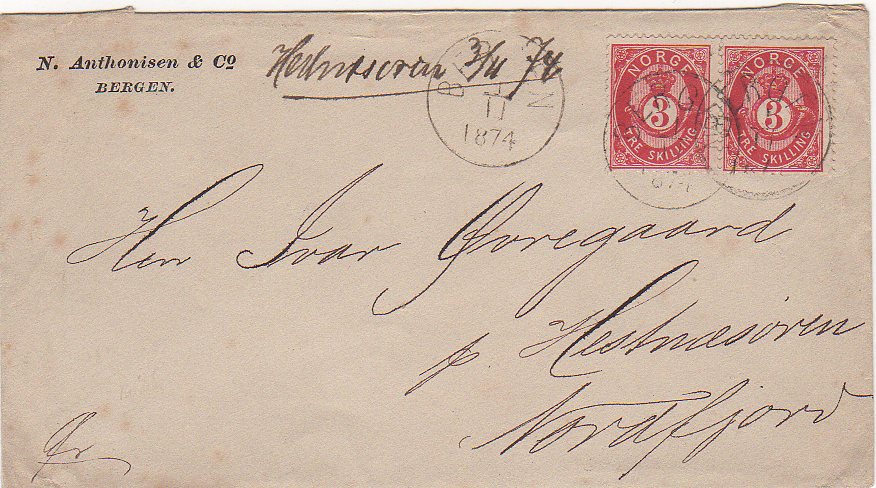 N. Anthonisen & Co
BERGEN.
3/11 74
1874
NORGE
3
TRE SKILLING
NORGE
3
TRE SKILLING
Herr Ivar Øvregaard
p. Hestnæsøren
Nordfjord